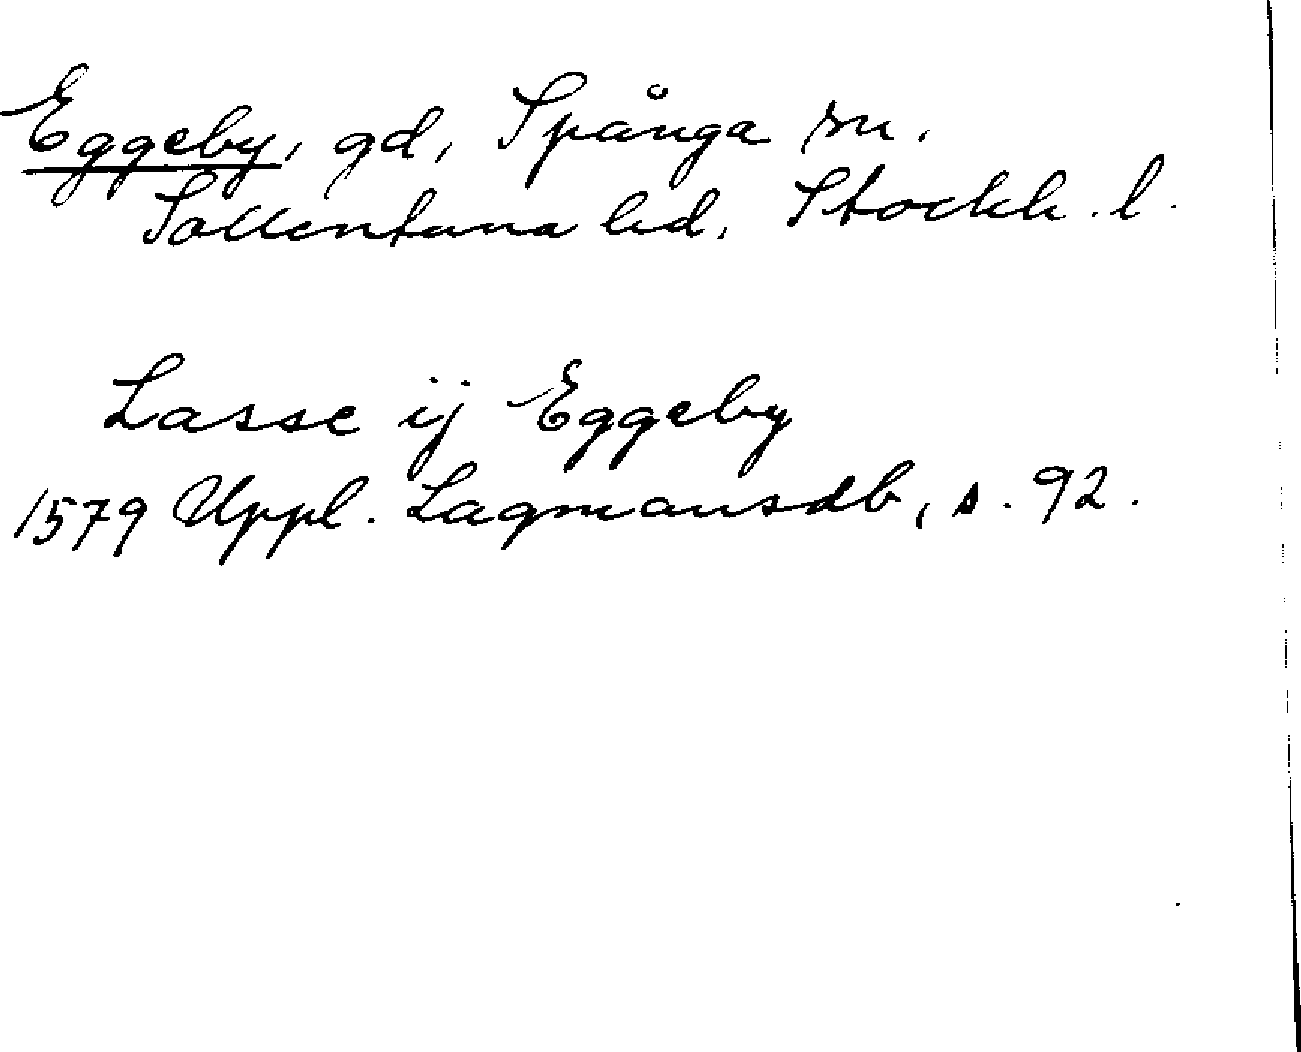 Eggeby, gd, Spånga sn.
Sollentuna hd, Stockh. l.
Lasse ij Eggeby
1579 Uppl. Lagmansdb, s. 92.